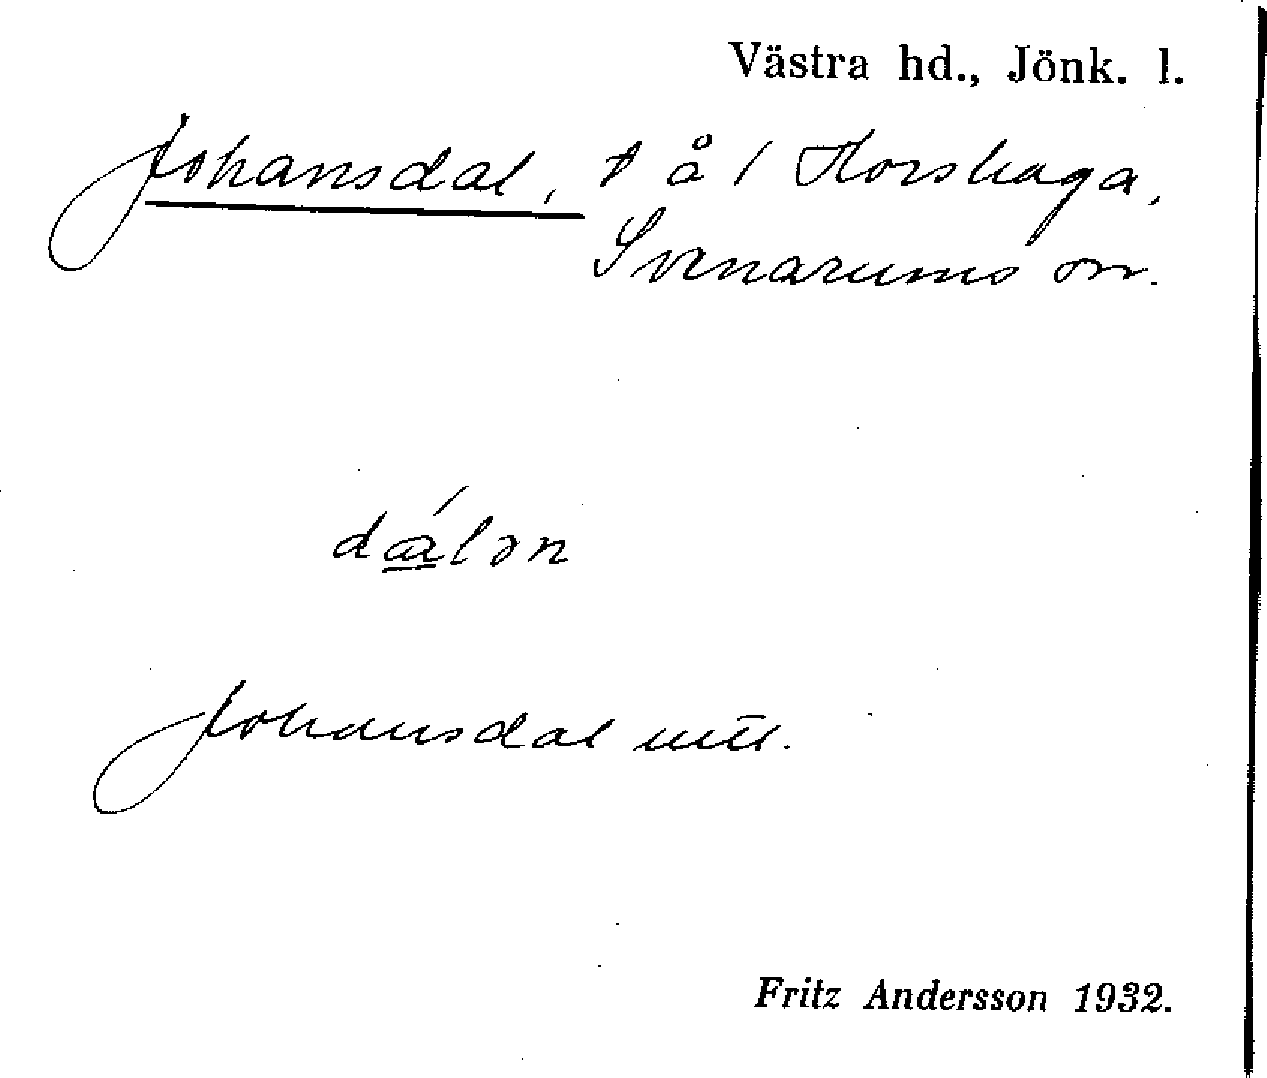 Västra hd., Jönk. l.
Johansdal, t å 1 Horshaga,
Svenarums sn.
dálən
Johansdal
Fritz Andersson 1932.